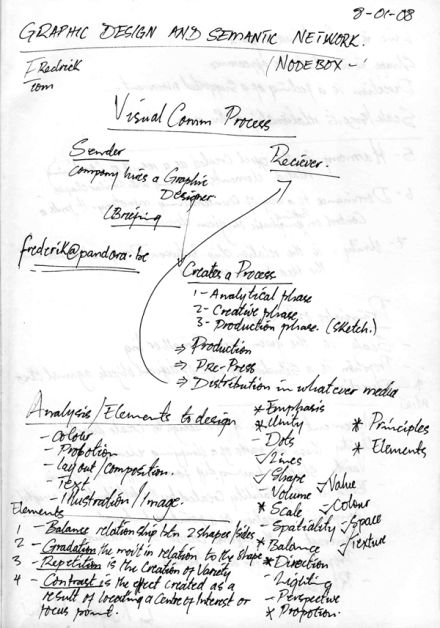 8-01-08
GRAPHIC DESIGN AND SEMANTIC NETWORK.
/NODEBOX -
FRedrick
com
Visual Comm Process
Sender
Reciever.
company hires a Graphic
Designer.
(Briefing
frederik@pandora.be
Creates a Process
1 - Analytical phase
2 - Creative phase
3 - Production phase. (sketch.)
⇒ Production
⇒ Pre-Press
⇒ Distribution in whatever media
Analysis/Elements to design
- Colour
- Propotion
- layout/Composition.
- Text
- Illustration/Image.
* Emphasis
* Unity
- Dots
✓ Lines
✓ Shape
- Volume
* Scale
- Spatiality
* Balance
* Direction
- Lighting
- Perspective
* Propotion.
✓ Value
✓ Colour
✓ Space
✓ Texture
* Principles
* Elements
Elements
1 - Balance relationship btn 2 shapes/sides
2 - Gradation the mov't in relation to the shape
3 - Repetition is the Creation of Variety
4 - Contrast is the efect created as a
result of locating a Centre of Interest or
focus point.